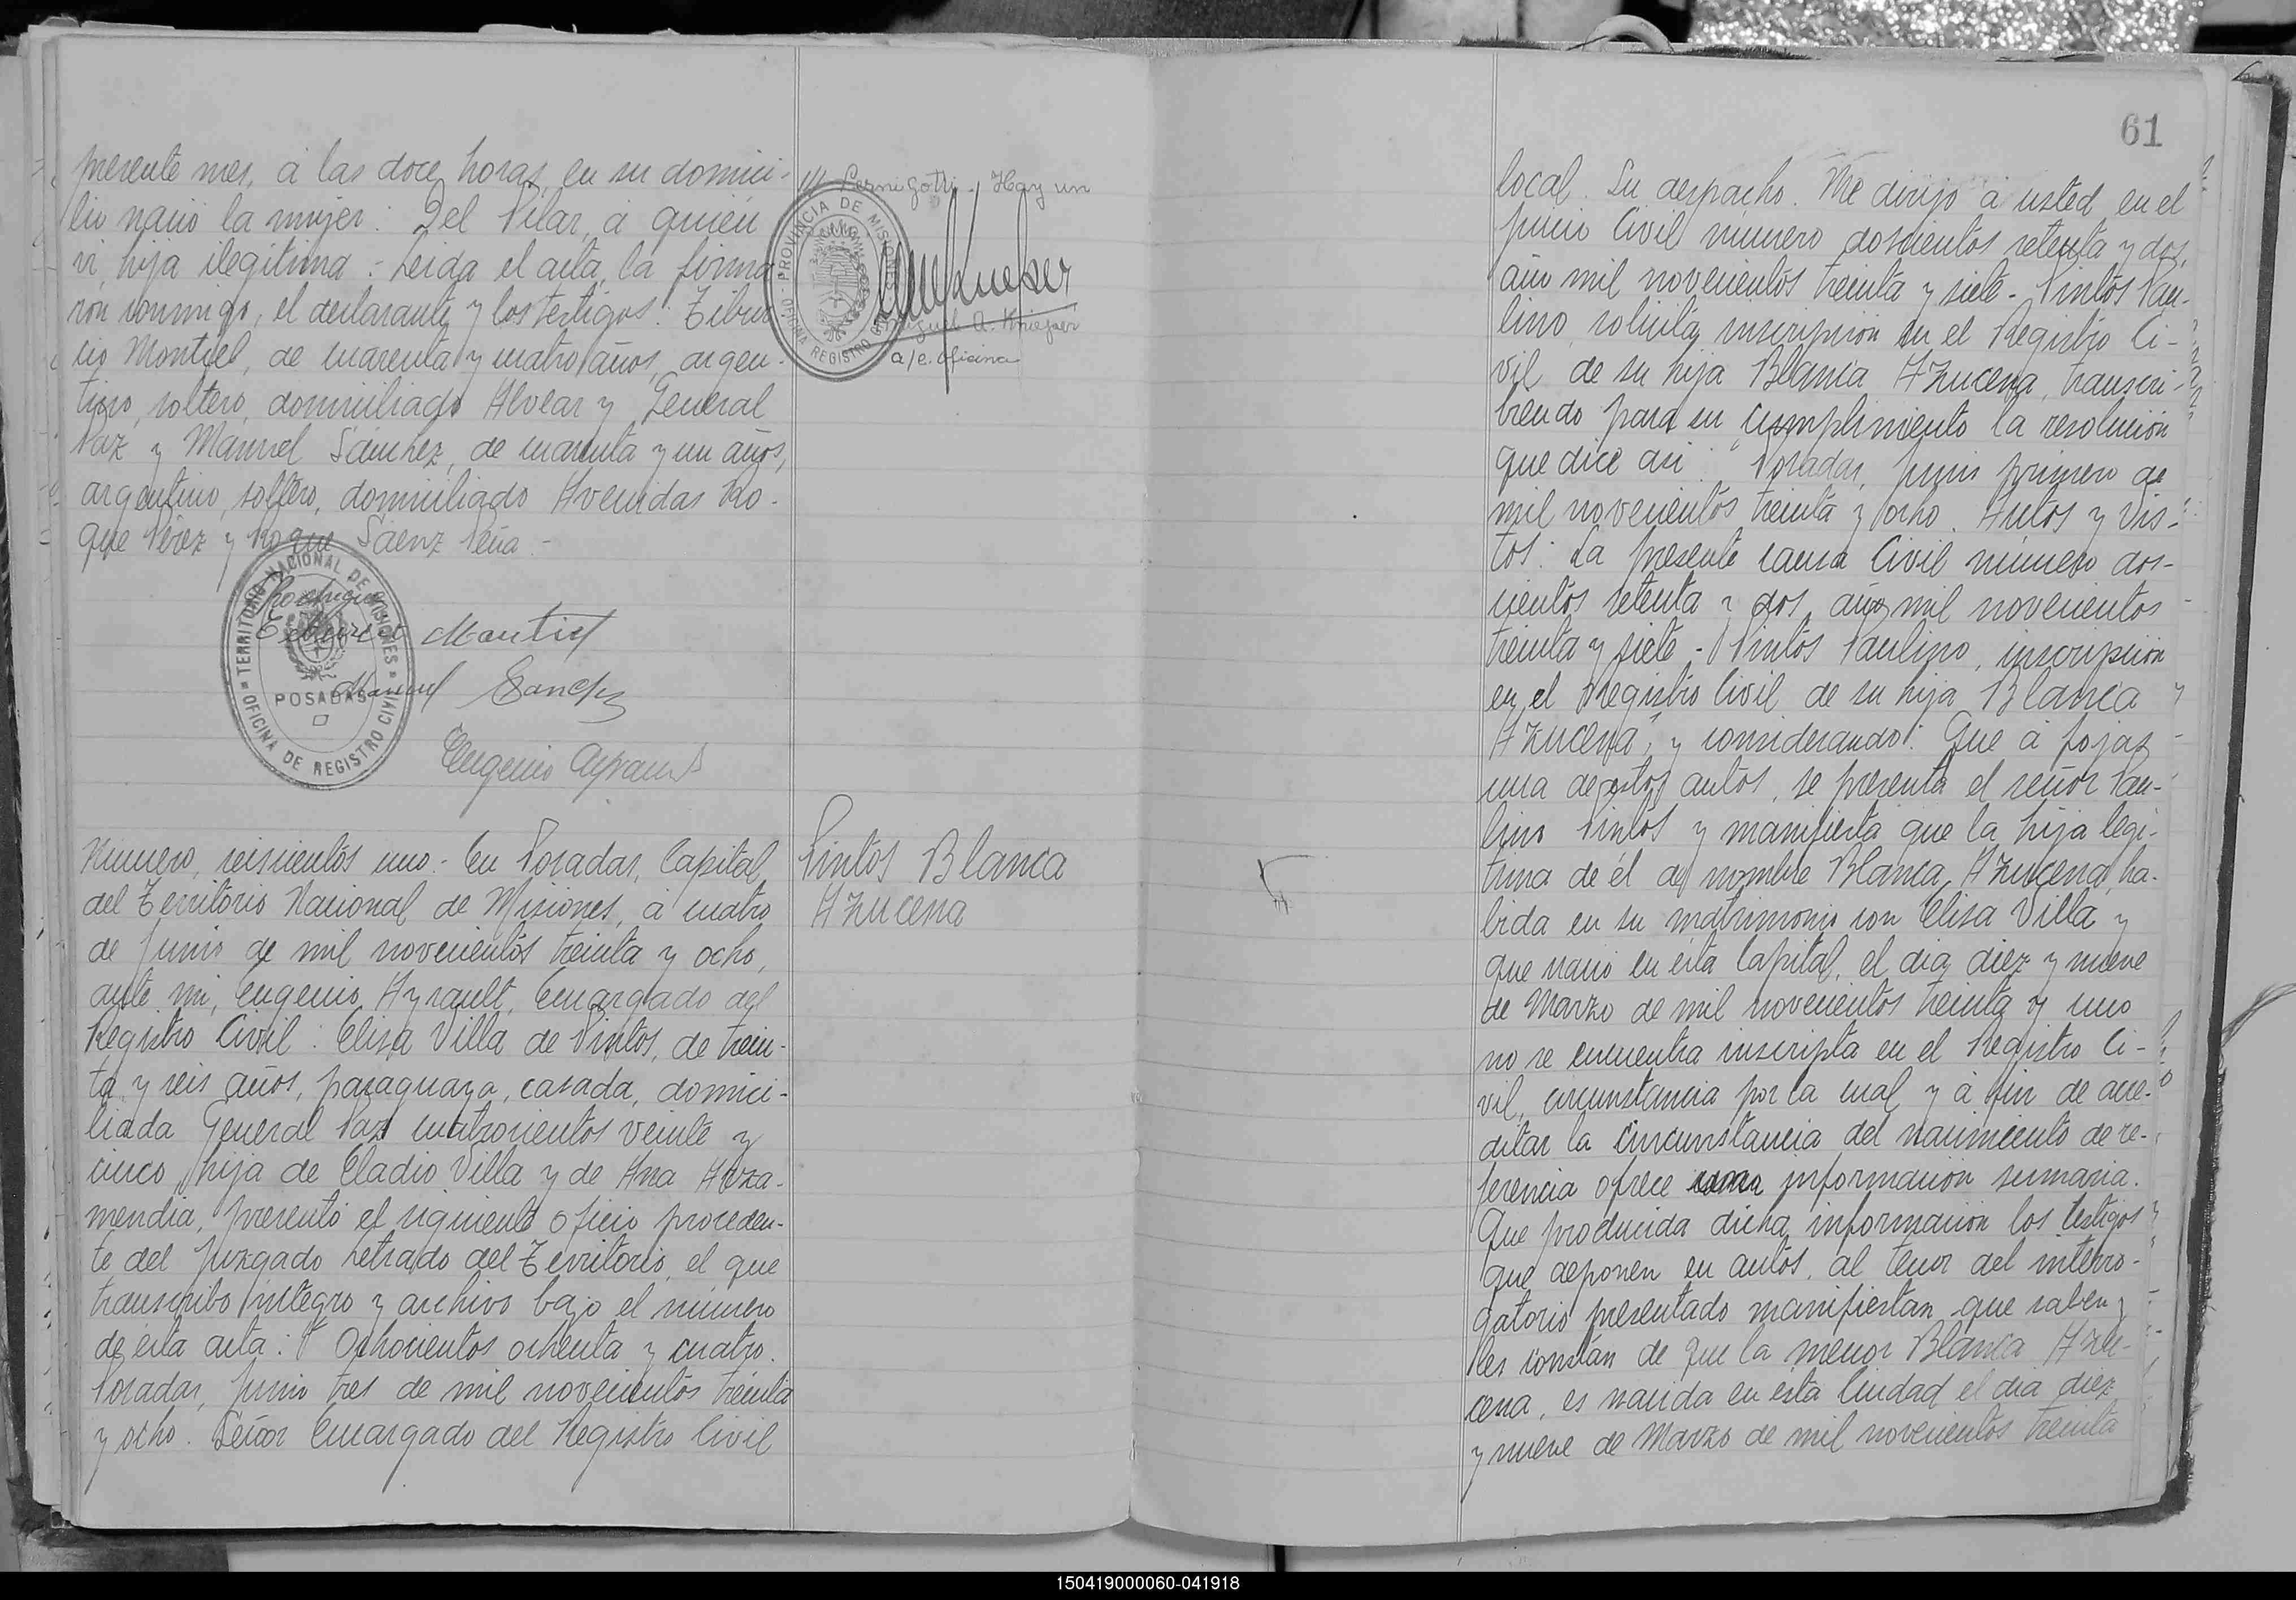 presente mes, á las doce horas, en su domici-
lio nació la mujer: Del Pilar, á quién
vi, hija ilegítima:- Leida el acta, la firma-
ron conmigo, el declarante y los testigos: Tibur-
cio Montiel, de cuarenta y cuatro años, argen-
tino, soltero, domiciliado Alvear y General
Paz y Manuel Sánchez, de cuarenta y un años,
argentino, soltero, domiciliado Avenidas Ro-
que Pérez y Roque Sáenz Peña.-
TERRITORIO NACIONAL DE MISIONES
OFICINA DE REGISTRO CIVIL
POSADAS
Rodriguez
Montiel
Manuel Sanchez
Eugenio Ayrault
Número, seiscientos uno:- En Posadas, Capital
del Territorio Nacional de Misiones, á cuatro
de Junio de mil novecientos treinta y ocho,
ante mi, Eugenio Ayrault, Encargado del
Registro Civil: Elisa Villa de Pintos, de trein-
ta y seis años, paraguaya, casada, domici-
liada General Paz cuatrocientos veinte y
cinco, hija de Eladio Villa y de Ana Arza-
mendia, presentó el siguiente oficio proceden-
te del Juzgado Letrado del Territorio, el que
transcribo íntegro y archivo bajo el número
de ésta acta: Ochocientos ochenta y cuatro.
Posadas, Junio tres de mil novecientos treinta
y ocho. Señor Encargado del Registro Civil
Pernigotti.- Hay un
PROVINCIA DE MISIONES
REGISTRO
Miguel A. Knieper
a/c. oficina
Pintos Blanca
Azucena
61
local. Su despacho. Me dirijo á usted en el
juicio Civil número doscientos setenta y dos,
año mil novecientos treinta y siete - Pintos Pau-
lino, solicita inscripción en el Registro Ci-
vil de su hija Blanca Azucena, transcri-
biendo para su cumplimiento la resolución
que dice así: "Posadas, junio primero de
mil novecientos treinta y ocho. Autos y Vis-
tos: La presente causa Civil número dos-
cientos setenta y dos, año mil novecientos
treinta y siete - Pintos Paulino, inscripción
en el Registro Civil de su hija Blanca
Azucena", y considerando: Que á fojas
una de estos autos, se presenta el señor Pau-
lino Pintos y manifiesta que la hija legí-
tima de él de nombre Blanca Azucena, ha-
bida en su matrimonio con Elisa Villa y
que nació en ésta Capital, el día diez y nueve
de Marzo de mil novecientos treinta y uno
no se encuentra inscripta en el Registro Ci-
vil, circunstancia por la cual y á fin de acre-
ditar la circunstancia del nacimiento de re-
ferencia ofrece una información sumaria.
Que producida dicha información los testigos
que deponen en autos, al tenor del interro-
gatorio presentado manifiestan que saben y
les constan de que la menor Blanca Azu-
cena, es nacida en ésta Ciudad el día diez
y nueve de Marzo de mil novecientos treinta
150419000060-041918